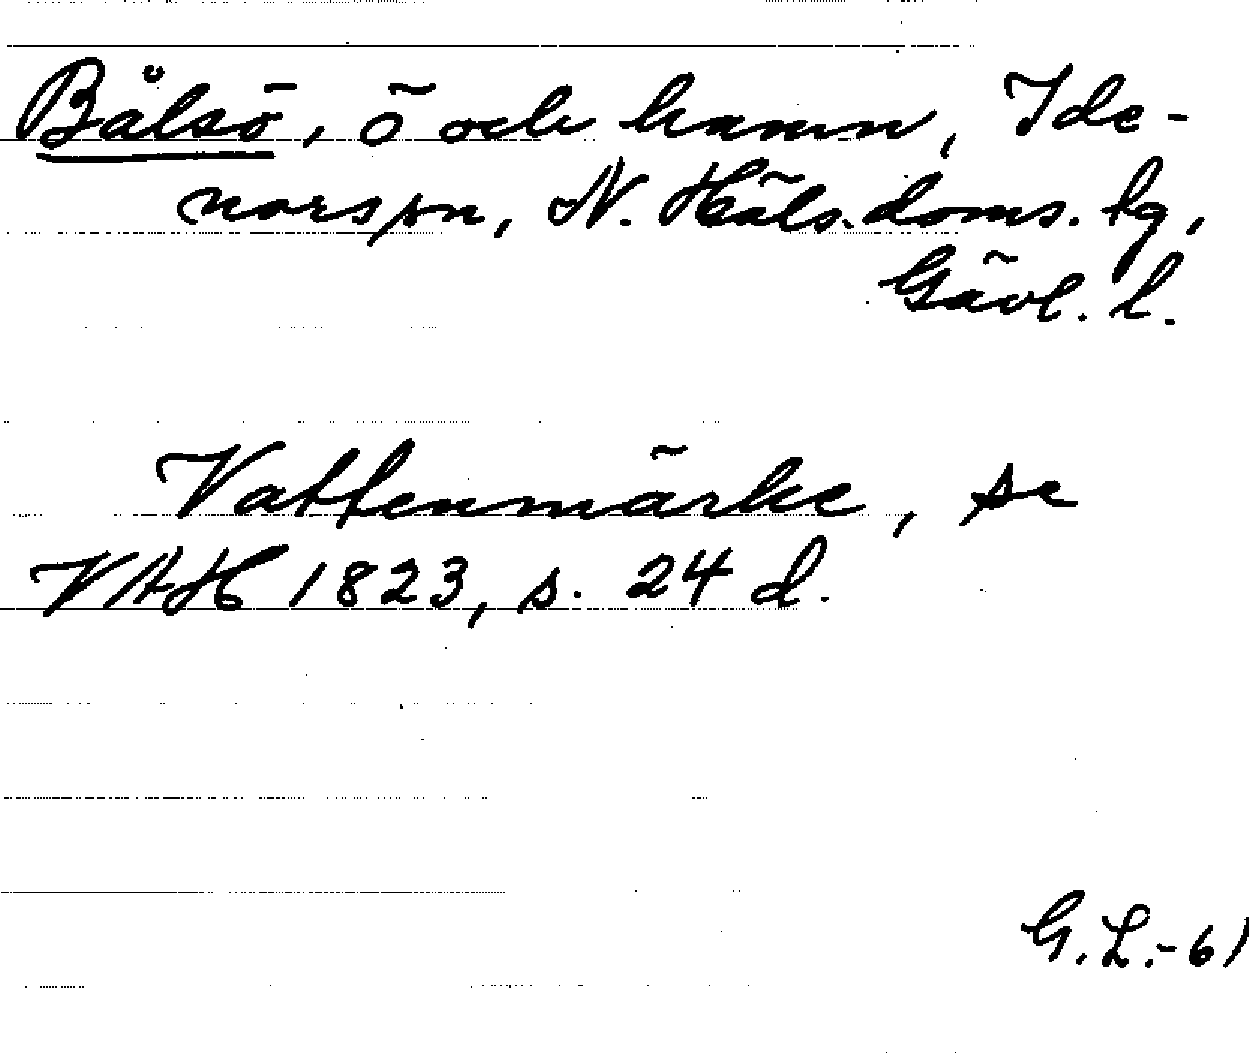 Bålsö, ö och hamn, Ide-
norspn, N. Häls. doms. lg,
Gävl. l.
Vattenmärke, se
VAH 1823, s. 24 d.
G.L.-61